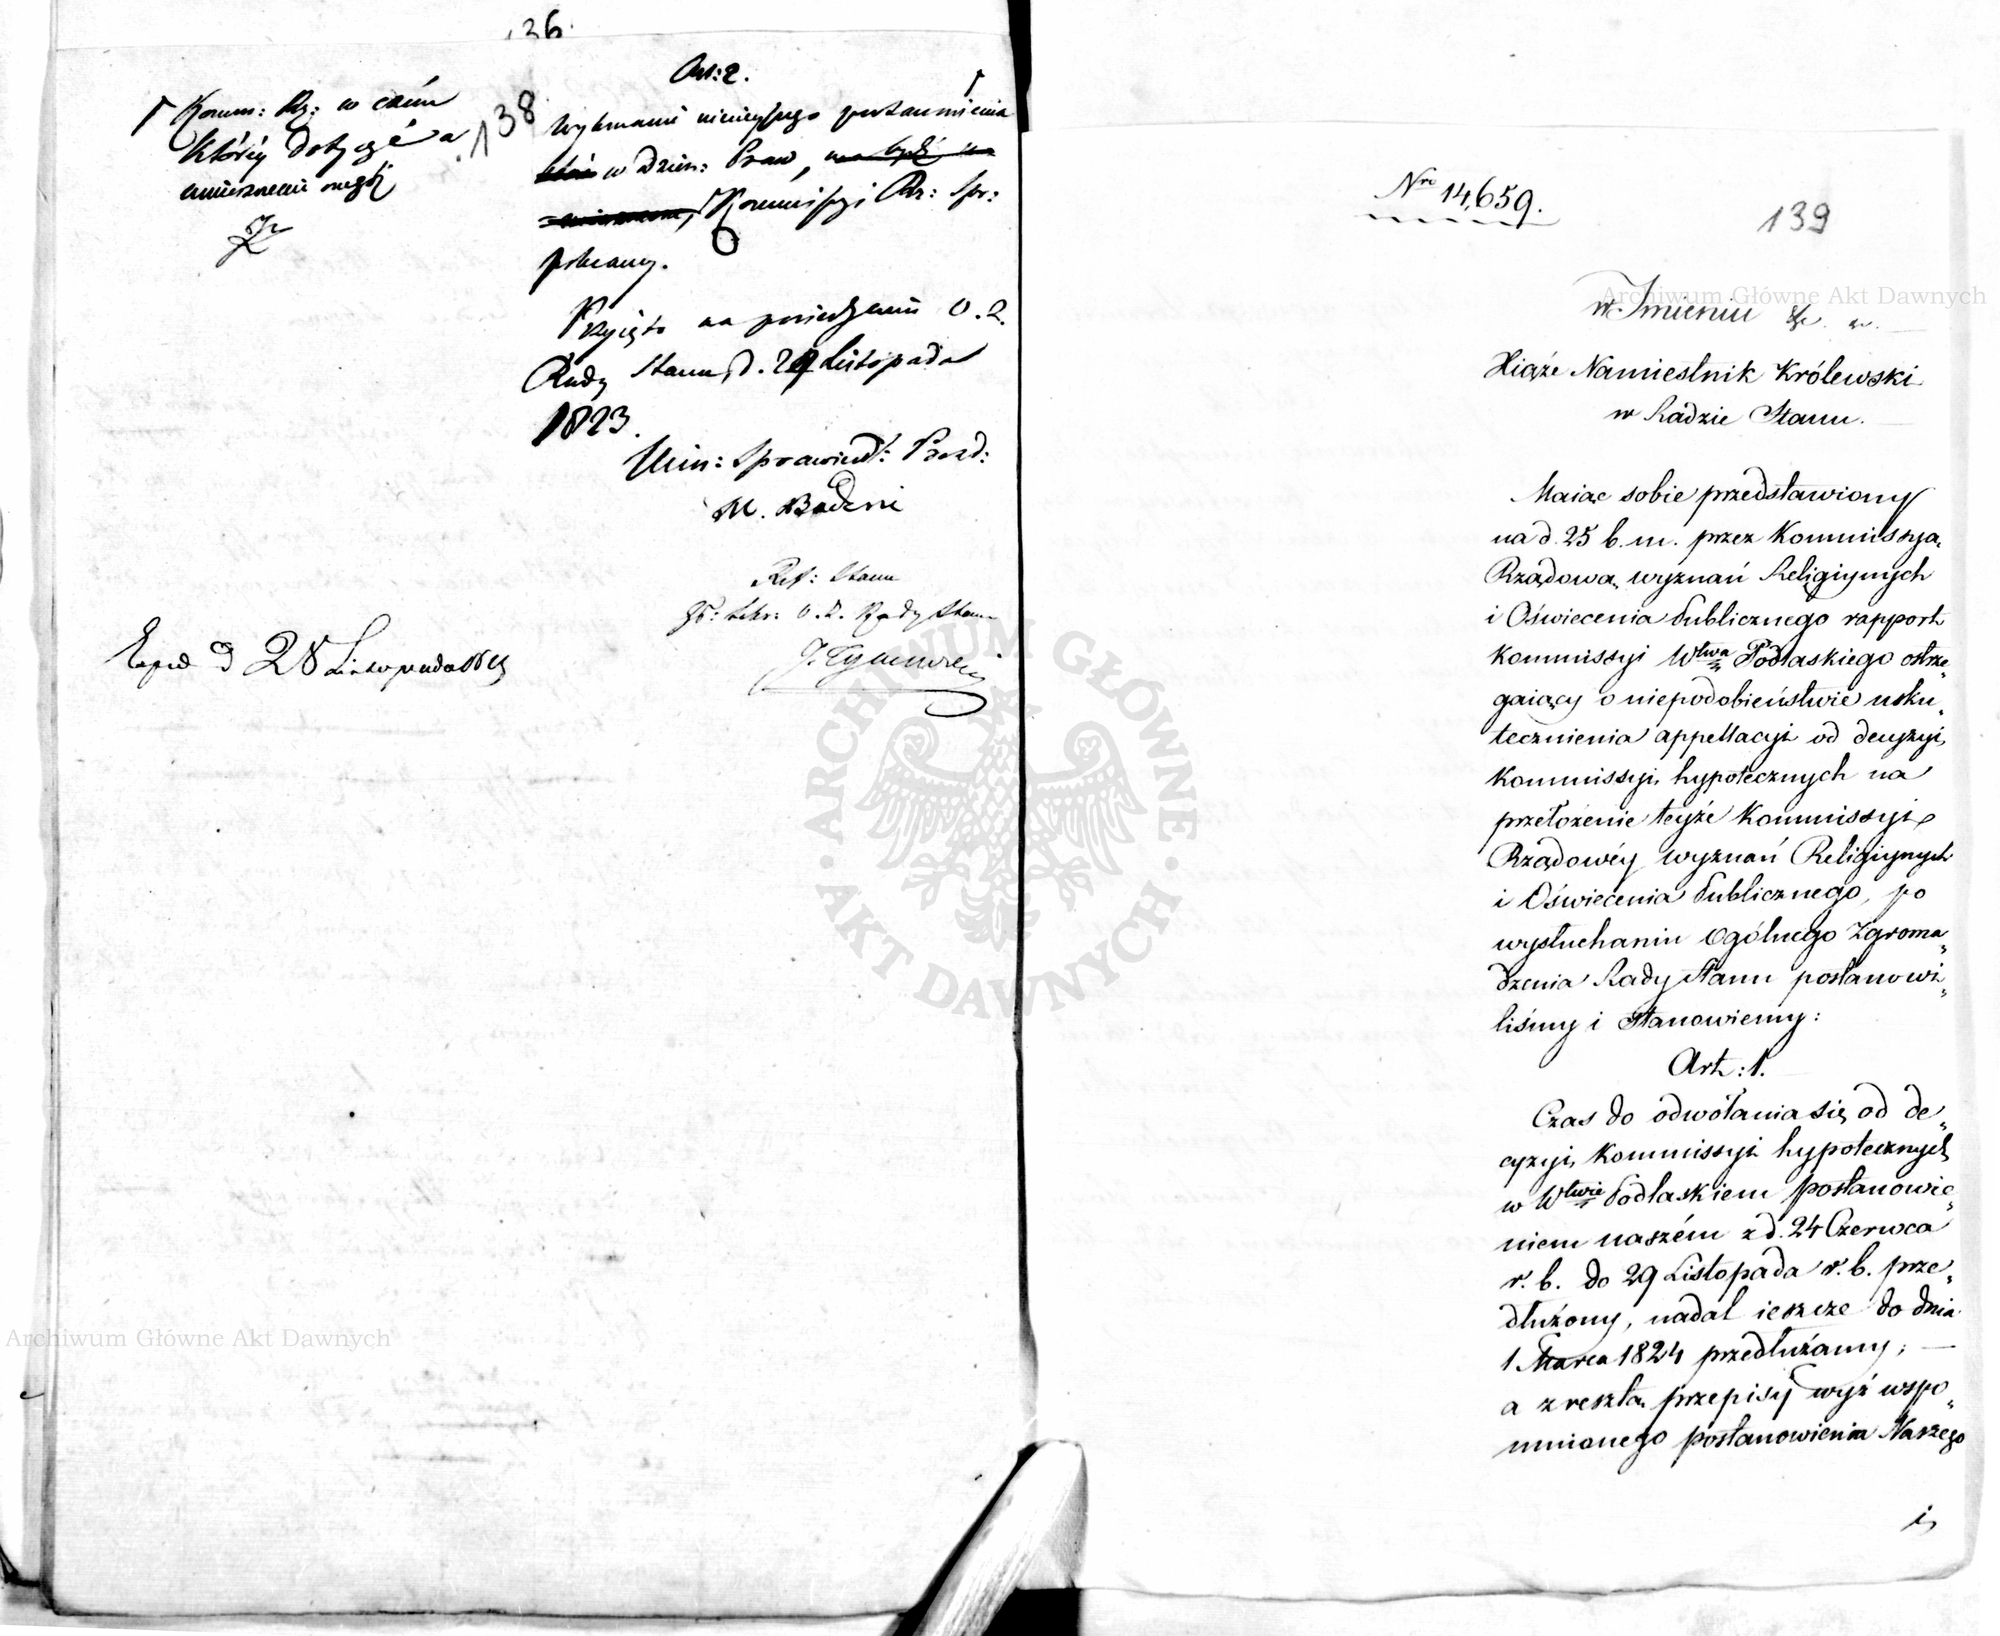 136.
138
Art: 2.
Wykonanie ninieyszego postanowienia
w Dzien: Praw,
Kommissyi Rz: Spr:
polecamy.
Przyięto na posiedzeniu O. Z.
Rady Stanu d. Listopada
1823.
Min: Sprawiedl: Prezd:
M. Badeni
Ref: Stanu
Sekr: O. Z. Rady Stanu
Komm: Rz: w czém
któréy dotyczé a
umieszczenie
Exped d 28 Listopada
Nro 14,659.
139
w Imieniu &c. &c.
Xiąże Namiestnik Królewski
w Radzie Stanu.
Maiąc sobie przedstawiony
na d. 25 b. m. przez Kommissyą
Rządową wyznań Religiynych
i Oświecenia Publicznego rapport
Kommissyi Wtwa Podlaskiego ostrze„
gaiący o niepodobieństwie usku„
tecznienia appellacyi od decyzyi
Kommissyi hypotecznych na
przełożenie teyże Kommissyi
Rządowéy wyznań Religiynych
i Oświecenia Publicznego, po
wysłuchaniu Ogólnego Zgroma„
dzenia Rady Stanu postanowi„
liśmy i Stanowiemy:
Art: 1.
Czas do odwołania się od de„
cyzyi Kommissyi hypotecznych
w Wtwie Podlaskiem postanowie„
niem naszém z d. 24 Czerwca
r. b. do 29 Listopada r. b. prze„
dłużony, nadal ieszcze do dnia
1 Marca 1824 przedłużamy; —
a zresztą przepisy wyż wspo„
mnionego postanowienia Naszego
i
Archiwum Główne Akt Dawnych
Archiwum Główne Akt Dawnych
ARCHIWUM GŁÓWNE
· AKT DAWNYCH ·